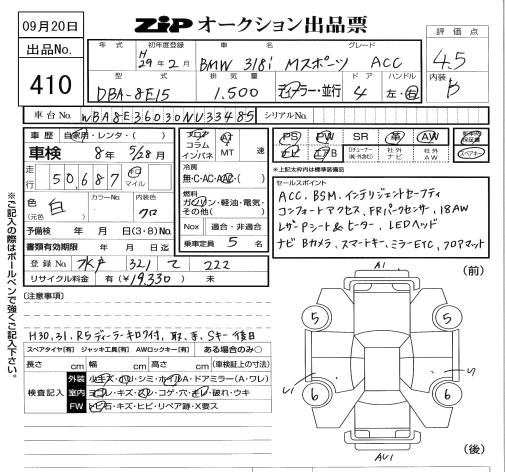 09月20日
ZIP オークション出品票
出品No.
410
評価点
4.5
内装
年式
初年度登録
車名
グレード
H
29年2月
BMW 318i Mスポーツ ACC
型式
排気量
ドア
ハンドル
DBA-8E15
1.500
ディーラー・並行
4
左・右
車台No.
WBA8E36030NU33485
シリアルNo.
車歴
自家用・レンタ・( )
車検
8年 5/28月
走行
50,687
km
マイル
色
(元色)
白
カラーNo.
内装
クロ
予備検 年 月 日(3・8)No.
書類有効期限 年 月 日迄
登録No.
水戸 321 て 222
リサイクル料金
有(¥19,330)
未
フロア
コラム
インパネ
AT
MT
速
冷房
無・C・AC・AAC・( )
燃料
ガソリン・軽油・電気・
その他( )
Nox
適合・非適合
乗車定員
5
名
PS PW SR 革 AW
ナビ TV
B
社外
ナビ
社外
AW
スペアキー
※上記太枠内は標準装備品
セールスポイント
ACC、BSM、インテリジェントセーフティ
コンフォートアクセス、FRパークセンサー、18AW
レザーPシート&ヒーター、LEDヘッド
ナビ Bカメラ、スマートキー、ミラーETC、フロアマット
※ご記入の際はボールペンで強くご記入下さい。
(注意事項)
H30,31,R5ディーラーキロク付、取、手、Sキー後日
スペアタイヤ[有] ジャッキ工具[有] AWロックキー[有] ある場合のみ○
長さ cm 幅 cm 高さ cm (車検証上の寸法)
検査記入
外装
小キズ・ヘコミ・シミ・ホイルA・ドアミラー(A・ワレ)
室内
ヨゴレ・キズ・スレ・コゲ・穴・キレ・破れ・ウキ
FW
トビ石・キズ・ヒビ・リペア跡・X要ス
(前)
A1
5
5
6
6
AU1
(後)